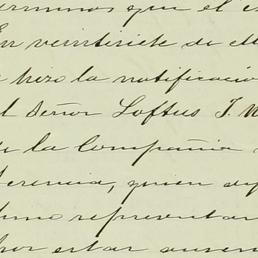 que el
En veintisiete de
hizo la notificació
Señor Loftus J. N
la Compañía
erencia, quien di
representar
por estar ausen